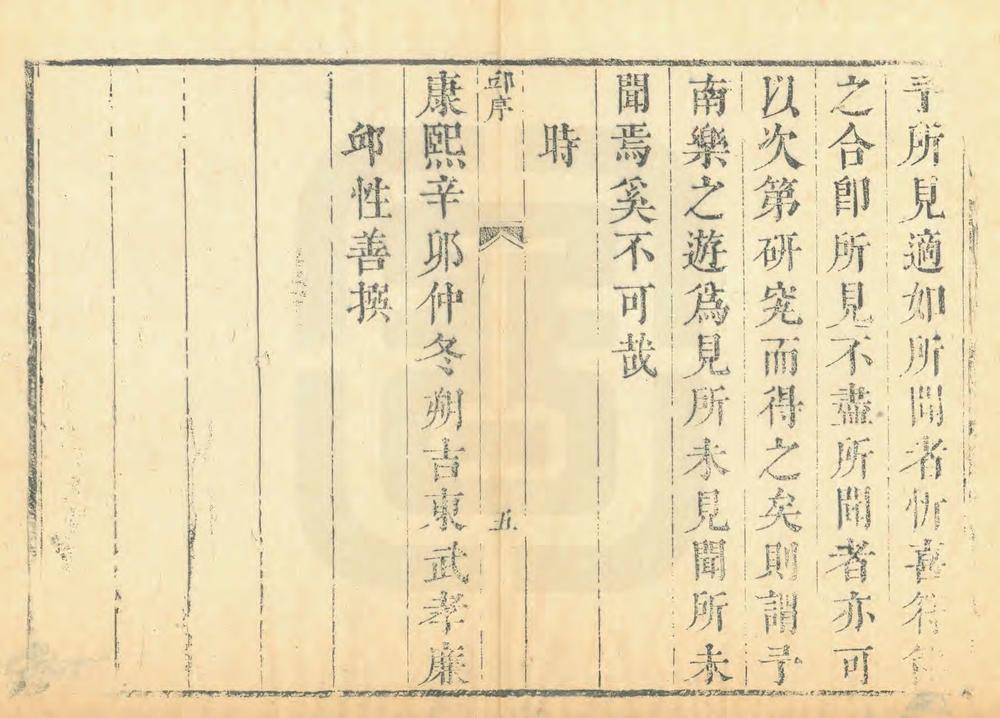 予所見適如所聞者忻喜符
之合即所見不盡所聞者亦可
以次第研究而得之矣則謂予
南樂之遊爲見所未見聞所未
聞焉奚不可哉
時
邱序
五
康熙辛卯仲冬朔吉東武孝廉
邱性善撰